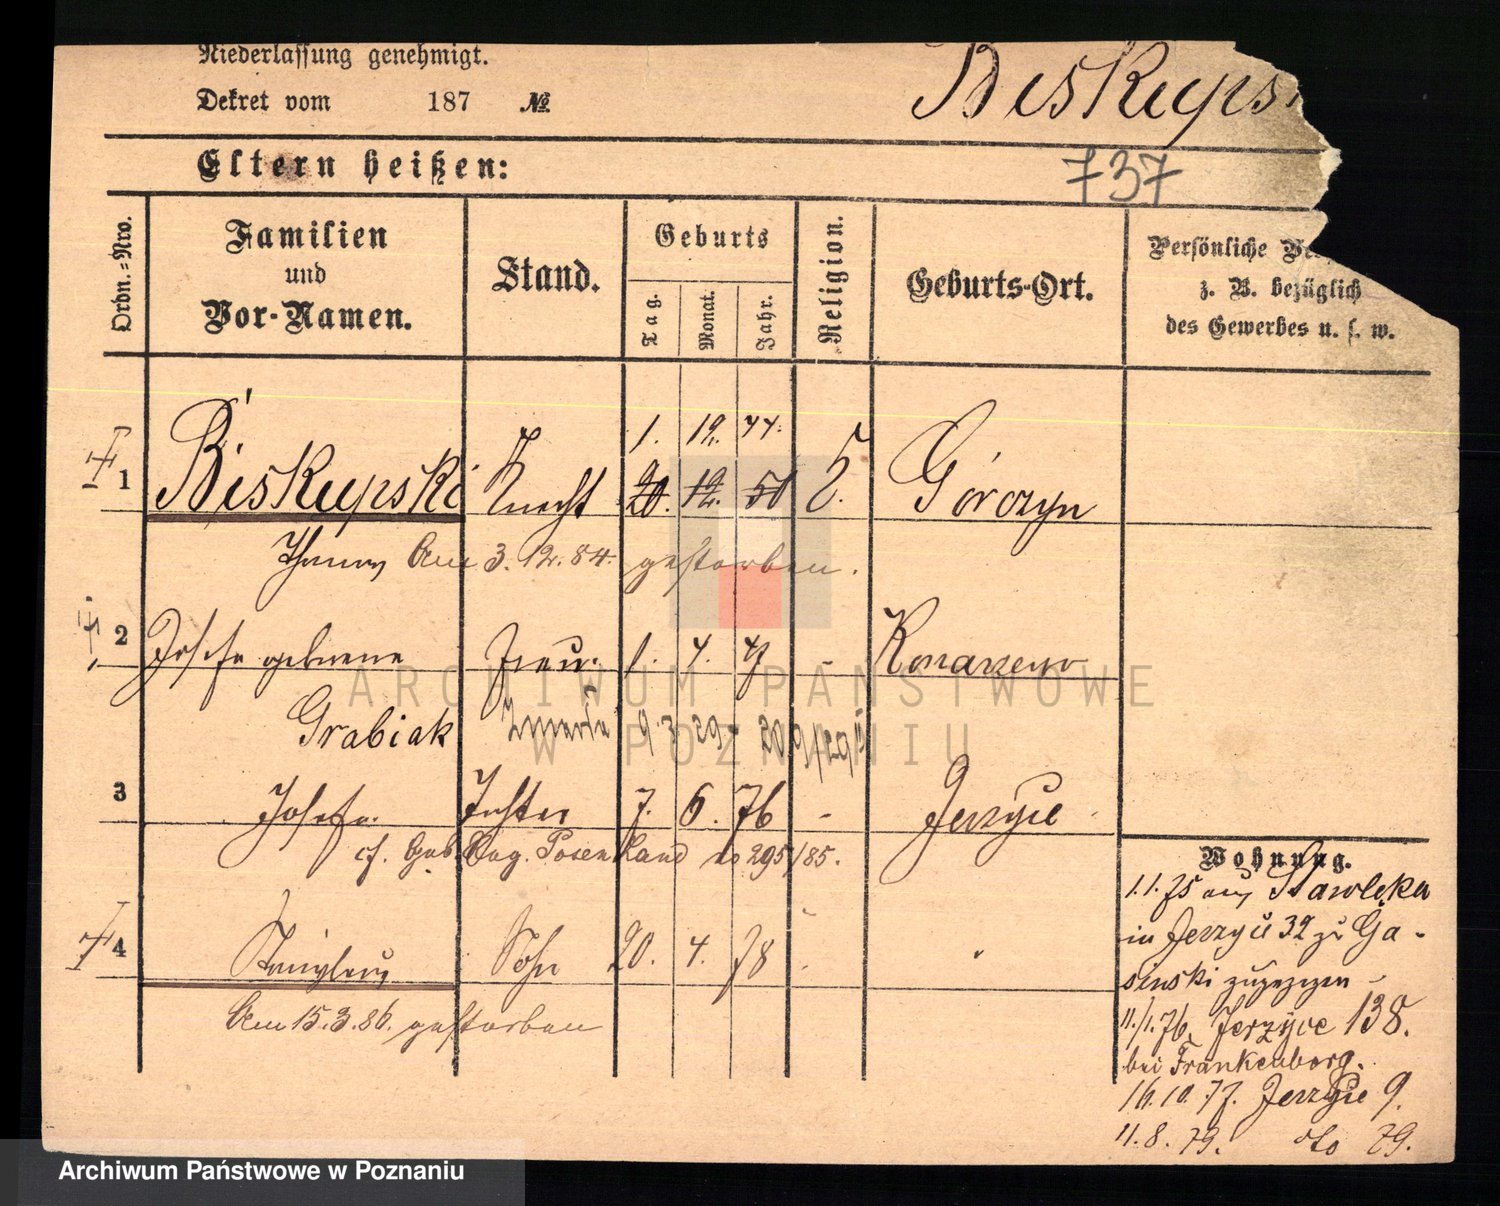 Niederlassung genehmigt.
Dekret vom 187 №
Biskups
Eltern heißen:
737
Ordn.=Nro.
Familien
und
Vor-Namen.
Stand.
Geburts
Tag.
Monat.
Jahr.
Religion.
Geburts-Ort.
Persönliche
z. B. bezüglich
des Gewerbes u. s. w.
1. 12. 44.
1 Biskupski Knecht 20. 12. 50 Górczyn
Thomas Am 3. 12. 84. gestorben.
2 Josefa geborene Frau. 1. 4. - Konarzewo
Grabiak
3 Josefa. Tochter 7. 6. 76 - Jerzyce
cf. Posen Land No 295/85.
4 Stanislaus Sohn 20. 4. 78 "
Am 15. 3. 86. gestorben
Wohnung.
1.1.75 aus
in Jerzyce 32 zu Ga-
sinski zugezogen -
11./1. 76. Jerzyce 138.
bei Frankenberg.
16. 10. 77. Jerzyce 9.
11. 8. 79. dto 79.
ARCHIWUM PAŃSTWOWE
W POZNANIU
Archiwum Państwowe w Poznaniu